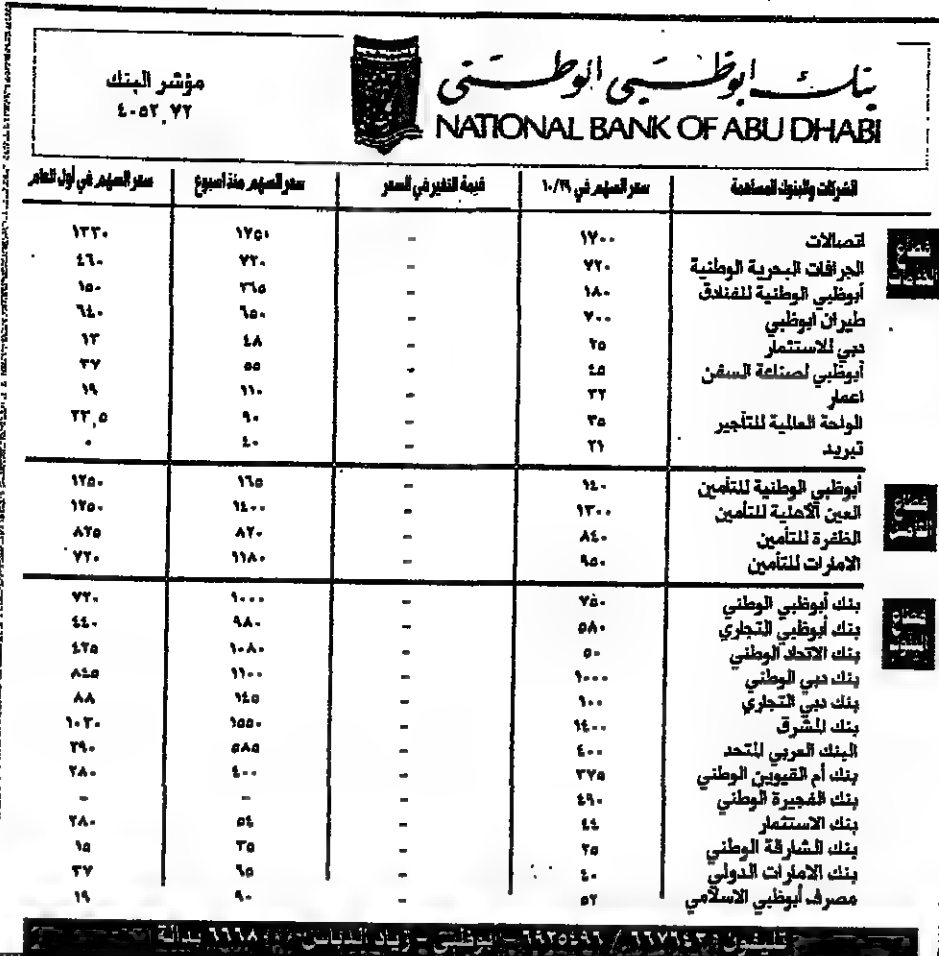 بنك ابوظبي الوطني
NATIONAL BANK OF ABU DHABI
مؤشر البنك
٤٠٥٢,٧٢
الشركات والبنوك المساهمة سعر السهم في ١٠/٢٩ قيمة التغير في السعر سعر السهم منذ اسبوع سعر السهم في أول العام
قطاع الخدمات
اتصالات ١٧٠٠ - ١٧٥٠ ١٣٣٠
الجرافات البحرية الوطنية ٧٢٠ - ٧٢٠ ٤٦٠
أبوظبي الوطنية للفنادق ١٨٠ - ٣٦٥ ١٥٠
طيران ابوظبي ٧٠٠ - ٦٥٠ ٦٤٠
دبي للاستثمار ٢٥ - ٤٨ ١٣
أبوظبي لصناعة السفن ٤٥ - ٥٥ ٣٧
اعمار ٣٢ - ١١٠ ١٩
الواحة العالمية للتأجير ٣٥ - ٩٠ ٢٣,٥
تبريد ٢١ - ٤٠ ٠
قطاع التأمين
أبوظبي الوطنية للتأمين ١٤٠ - ١٦٥ ١٢٥٠
العين الأهلية للتأمين ١٣٠٠ - ١٤٠٠ ١٢٥٠
الظفرة للتأمين ٨٤٠ - ٨٢٠ ٨٢٥
الامارات للتأمين ٩٥٠ - ١١٨٠ ٧٢٠
قطاع البنوك
بنك أبوظبي الوطني ٧٥٠ - ١٠٠٠ ٧٢٠
بنك أبوظبي التجاري ٥٨٠ - ٩٨٠ ٤٤٠
بنك الاتحاد الوطني ٥٠ - ١٠٨٠ ٤٢٥
بنك دبي الوطني ١٠٠٠ - ١١٠٠ ٨٤٥
بنك دبي التجاري ١٠٠ - ١٤٥ ٨٨
بنك المشرق ١٤٠٠ - ١٥٥٠ ١٠٣٠
البنك العربي المتحد ٤٠٠ - ٥٨٥ ٢٩٠
بنك أم القيوين الوطني ٣٧٥ - ٤٠٠ ٢٨٠
بنك الفجيرة الوطني ٤٩٠ - - -
بنك الاستثمار ٤٤ - ٥٤ ٢٨٠
بنك الشارقة الوطني ٢٥ - ٣٥ ١٥
بنك الامارات الدولي ٤٠ - ٦٥ ٣٧
مصرف أبوظبي الاسلامي ٥٢ - ٩٠ ١٩
تليفون: ٦٦٧٦٤٣٠ / ٦٩٢٥٤٩٦ - ابوظبي - زياد الدباس - ٦٦٦٨ بدالة